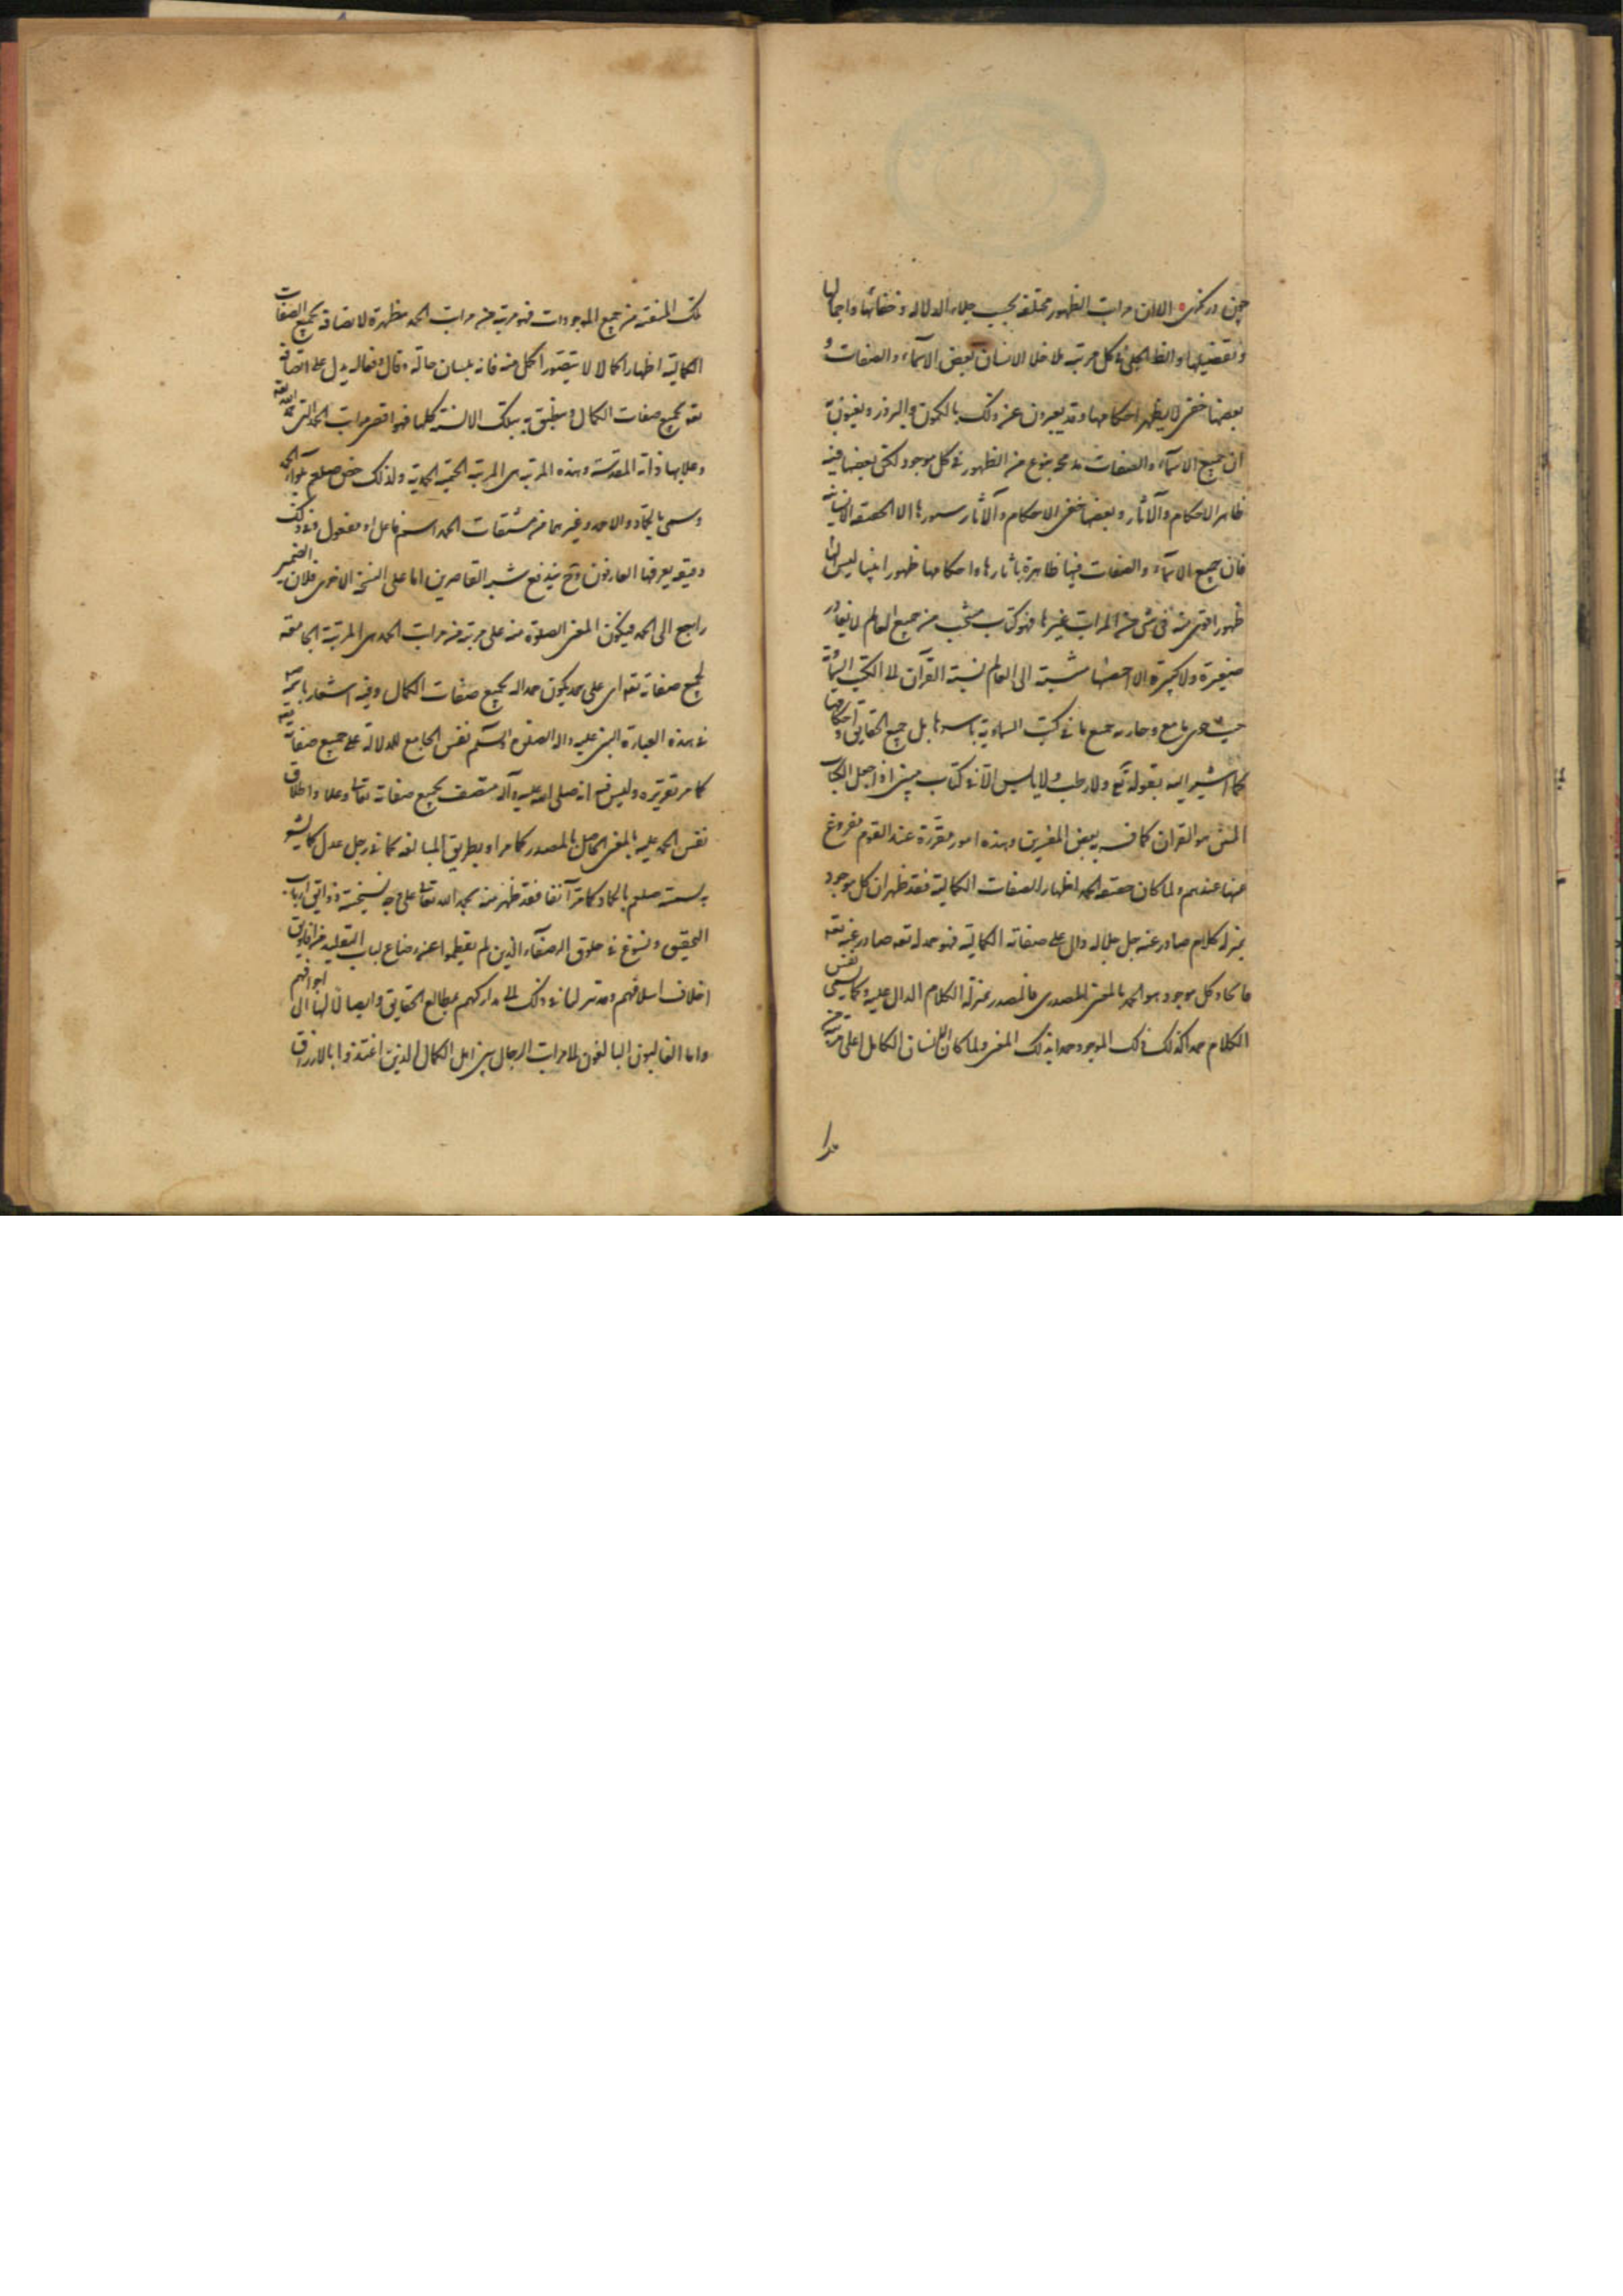 چون در نكرى الا ان مراتب الظهور مختلفة بحسب جلاء الدلالة و خفائها و اجمالها
و تفصيلها و الظاهر فى كل مرتبة ما خلا الانسان بعض الاسماء و الصفات و
بعضها خفى لا يظهر احكامها و قد يعبرون عن ذلك بالكمون و البروز و يعنون به
ان جميع الاسماء و الصفات مندمجة بنوع من الظهور فى كل موجود لكن بعضها فيه
ظاهر الاحكام و الآثار و بعضها خفى الاحكام و الآثار الا الحقيقة الانسانية
فان جميع الاسماء و الصفات فيها ظاهرة بآثارها و احكامها ظهورا ليس لها
ظهورا اقوى منه فى شئ من المراتب غيرها فهو كتاب منتخب من جميع العالم لا يغادر
صغيرة و لا كبيرة الا احصيها نسبته الى العالم نسبة القرآن الى الكتب السمائية
جميع ما فى كتب السماوية باسرها بل جميع الحقايق و احكامها
كما اشير اليه بقوله تع و لا رطب و لا يابس الا فى كتاب مبين اذا جعل الكتاب
المبين هو القرآن كما فسر به بعض المفسرين و هذه امور مقررة عند القوم مفروغ
عنها عندهم و لما كان حقيقة الحمد اظهار الصفات الكمالية فقد ظهر ان كل موجود
بمنزلة كلام صادر عنه جل جلاله دال على صفاته الكمالية فهو حمد له تعه صادر عنه تعه
فايجاد كل موجود هو الحمد بالمعنى المصدرى فالمصدر بمنزلة الكلام الدال عليه و كما يسمى نفس
الكلام حمدا كذلك ذلك الموجود حمد بذلك المعنى و لما كان الانسان الكامل اعلى مرتبة من
هذا
تلك المنقبة من جميع الموجودات فهو مرتبة من مراتب الحمد مظهرة لاتصافه بجميع الصفات
الكمالية اظهارا كاملا لا يتصور اكمل منه فانه بلسان حاله و قاله و فعاله يدل على اتصافه
تعه بجميع صفات الكمال و ينطق به بتلك الالسنة كلها فهو اقصى مراتب الحمد التى حمد الله تعه
و علا بها ذاته المقدسة و هذه المرتبة هى المرتبة الختمية المحمدية و لذلك خص صلعم بلواء الحمد
و سمى بالحماد و الاحمد و غيرهما من مشتقات الحمد اسم فاعل او مفعول و فى ذلك
دقيقة يعرفها العارفون و ح يندفع شبه القاصرين اما على النسخة الاخرى فلان الضمير
راجع الى الحمد فيكون المعنى الصلوة منه على مرتبة من مراتب الحمد هى المرتبة الجامعة
لجميع صفاته تعه اى على حمد يكون حمدا له بجميع صفات الكمال و فيه اشعار بانه
فى هذه العبارة النبى عليه و اله الصلوة و السلم نفس الجامع للدلالة على جميع صفاته
كما مر تقريره و ليس فيه انه صلى الله عليه و آله متصف بجميع صفاته تعالى و علا و اطلاق
نفس الحمد عليه بالمعنى الحاصل بالمصدر كما مر او بطريق المبالغة كما فى رجل عدل كما يشعر
به تسميته صلعم بالحماد كما مر آنفا فقد ظهر منه بحمد الله تعالى على وجه يستحسنه ذوائق ارباب
التحقيق و يسوغ فى حلوق الرضعاء الذين لم يفطموا عن رضاع لباب التقليد من افاويق
اخلاف اسلافهم و قد تنزلنا فى ذلك الى مداركهم بمطالع الحقايق و ايصالا لها الى اجوافهم
و اما الغالبون البالغون الى مراتب الرجال من اهل الكمال الذين اغتذوا بالارزاق